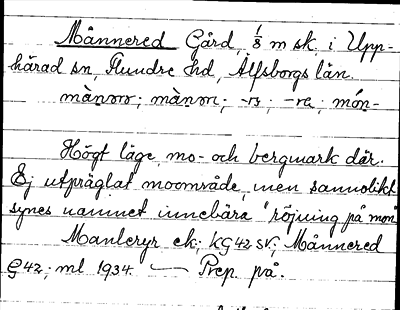 Månnered Gård, 1/8 m sk. i Upp-
härad sn, Flundre hd, Älfsborgs län.
mànərə; mànərı; -rs; -ra; món-
Högt läge, mo- och bergmark där.
Ej utpräglat moområde, men sannolikt
synes namnet innebära "röjning på mon"
Manleryr ek. KG42 sv; Månnered
G42; ml 1934. — Prep. på.